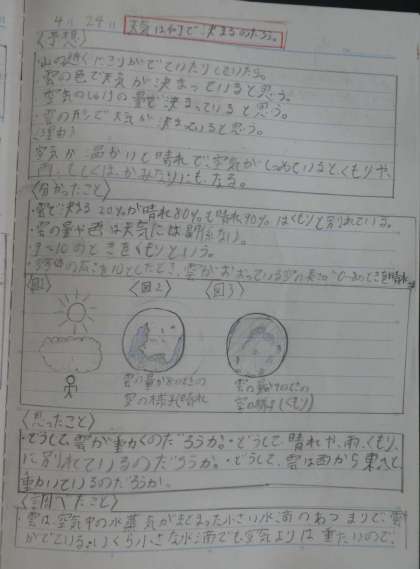 4月24日 天気は何で決まるのだろう。
〈予想〉
・山の近くにきりがでていたりしていたら。
・雲の色で天気が決まっていると思う。
・空気のしっけの量で決まっていると思う。
・雲のカタチで天気が決まっていると思う。
〈理由〉
空気が温かいと晴れで、空気がしめっているとくもりや、
雨、もしくは、かみなりにもなる。
〈分かったこと〉
・雲で決まる 20%が晴れ80%も晴れ90%はくもりと別れている。
・雲の量や色は天気には関係ない。
・9~10のときをくもりという。
・空全体の広さを10としたとき、雲がおおっている空の広さが0~8のときを晴れ
〈図1〉 〈図2〉 〈図3〉
雲の量が8のときの
空の様子(晴れ)
雲の量が9のときの
空の様子(くもり)
〈思ったこと〉
・どうして、雲が動くのだろうか。・どうして、晴れや、雨、くもり、
に別れているのだろうか。・どうして、雲は西から東へと、
動いているのだろうか。
〈調べたこと〉
・雲は、空気中の水蒸気が集まった小さい水滴のあつまりで、雲
ができている。いくら小さな水滴でも空気よりは重たいので、